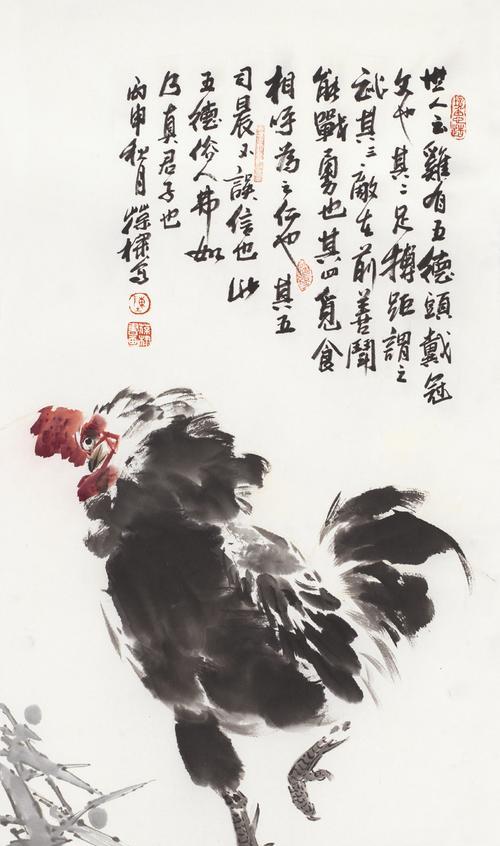 世人云雞有五德頭戴冠
文也其二足搏距謂之
武其三敵在前善鬪
能戰勇也其四覓食
相呼為之仁也其五
司晨不誤信也此
五德俗人弗如
乃真君子也
丙申秋月 寫